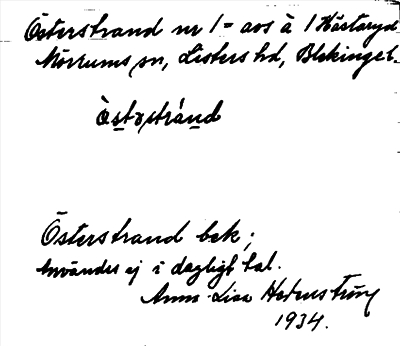 Österstrand nr 1 = avs å 1 Hästaryd
Mörrums sn, Listers hd, Blekinge l.
Östərstránd
Österstrand bek;
Användes ej i dagligt tal.
Anna-Lisa Hedenström
1934.